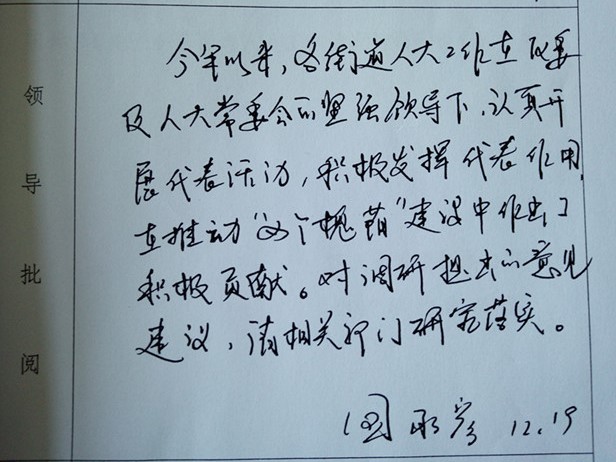 领导批阅
今年以来，各街道人大工作在区委
及人大常委会的坚强领导下，认真开
展代表活动，积极发挥代表作用，
在推动“两个槐荫”建设中作出了
积极贡献。对调研提出的意见
建议，请相关部门研究落实。
国承彦 12.19